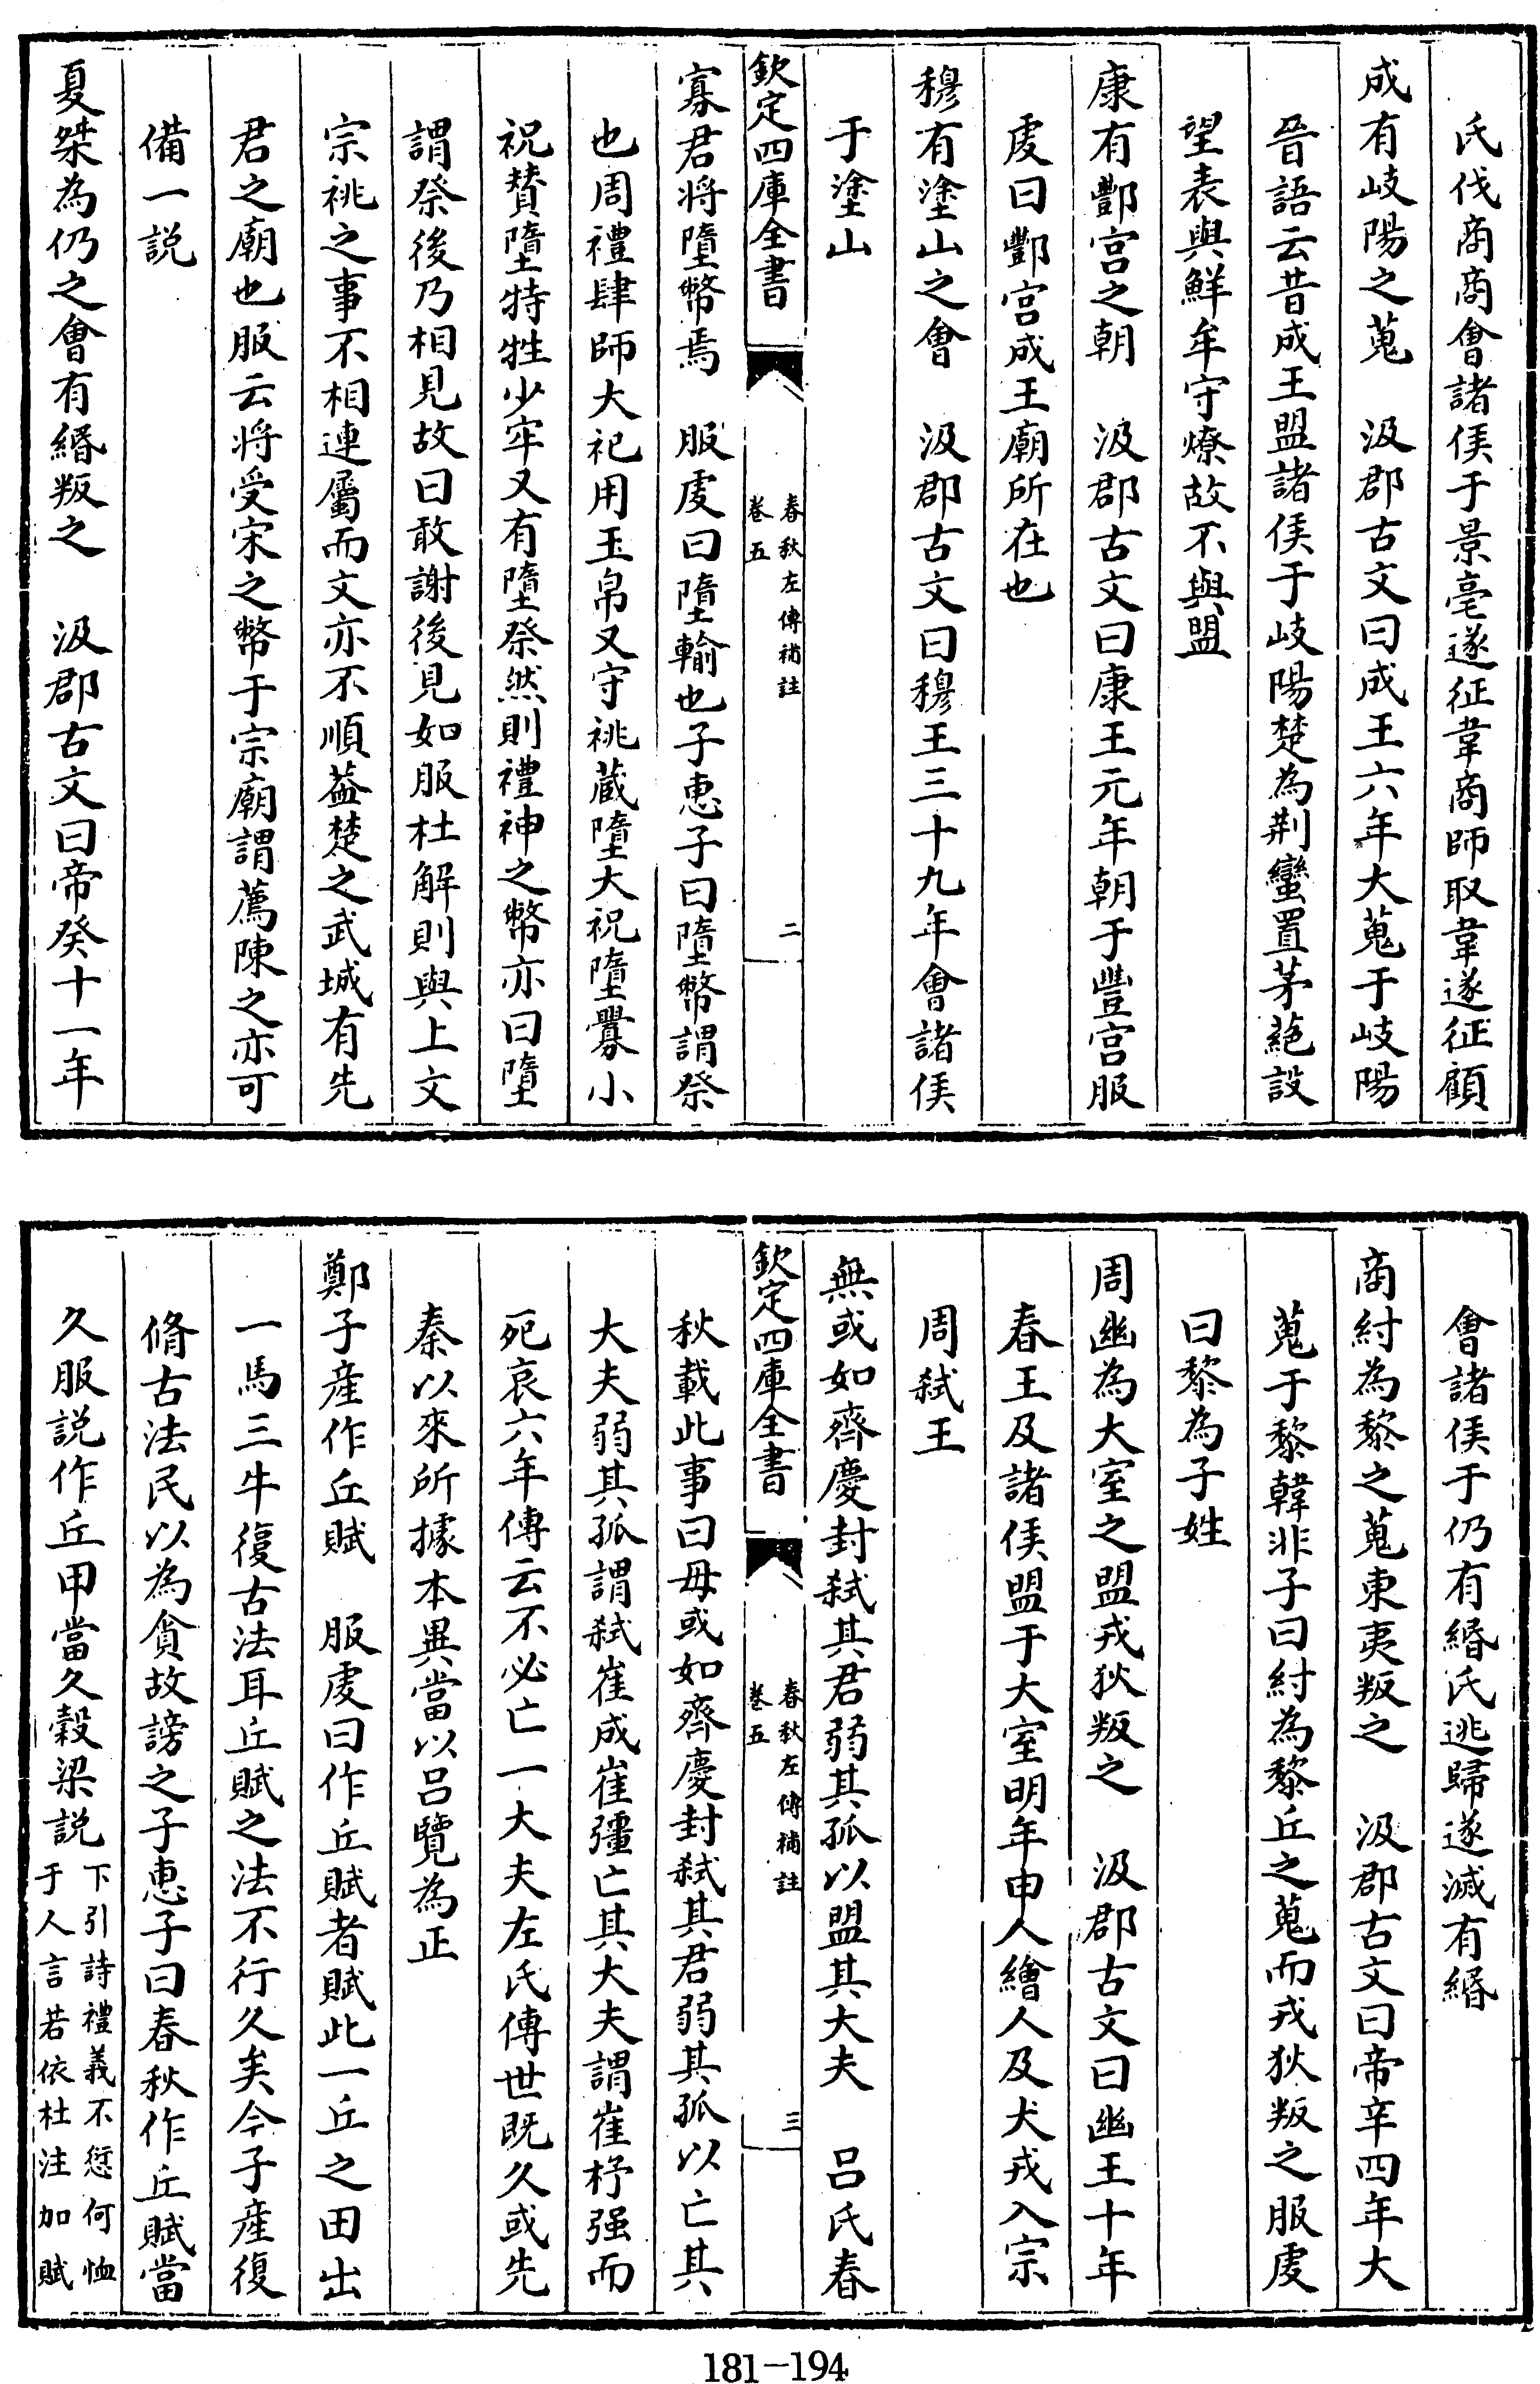 氏伐商商會諸侯于景亳遂征韋商師取韋遂征顧
成有岐陽之蒐　汲郡古文曰成王六年大蒐于岐陽
晉語云昔成王盟諸侯于岐陽楚為荆蠻置茅蕝設
望表與鮮牟守燎故不與盟
康有酆宫之朝　汲郡古文曰康王元年朝于豐宫服
虔曰酆宫成王廟所在也
穆有塗山之會　汲郡古文曰穆王三十九年會諸侯
于塗山
欽定四庫全書
春秋左傳補註
卷五
二
寡君將墮幣焉　服虔曰墮輸也子惠子曰墮幣謂祭
也周禮肆師大祀用玉帛又守祧蔵墮大祝墮釁小
祝贊墮特牲少牢又有墮祭然則禮神之幣亦曰墮
謂祭後乃相見故曰敢謝後見如服杜解則與上文
宗祧之事不相連屬而文亦不順葢楚之武城有先
君之廟也服云將受宋之幣于宗廟謂薦陳之亦可
備一説
夏桀為仍之會有緡叛之　汲郡古文曰帝癸十一年
會諸侯于仍有緡氏逃歸遂滅有緡
商紂為黎之蒐東夷叛之　汲郡古文曰帝辛四年大
蒐于黎韓非子曰紂為黎丘之蒐而戎狄叛之服虔
曰黎為子姓
周幽為大室之盟戎狄叛之　汲郡古文曰幽王十年
春王及諸侯盟于大室明年申人繒人及犬戎入宗
周弑王
無或如齊慶封弑其君弱其孤以盟其大夫　吕氏春
欽定四庫全書
春秋左傳補註
卷五
三
秋載此事曰毋或如齊慶封弑其君弱其孤以亡其
大夫弱其孤謂弑崔成崔彊亡其大夫謂崔杼强而
死哀六年傳云不必亡一大夫左氏傳世既久或先
秦以來所據本異當以吕覽為正
鄭子産作丘賦　服虔曰作丘賦者賦此一丘之田出
一馬三牛復古法耳丘賦之法不行久矣今子産復
脩古法民以為貪故謗之子惠子曰春秋作丘賦當
久服説作丘甲當久穀梁説
下引詩禮義不愆何恤
于人言若依杜注加賦
181-194